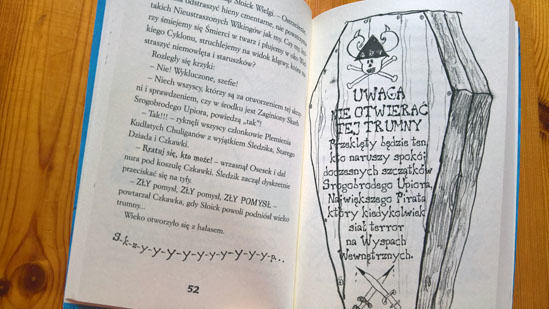 Słoick Wielgi. – Ostrzeżenie
odstraszyć hieny cmentarne, nie powstrzyma
takich Nieustraszonych Wikingów jak my. Czy my,
rzy śmiejemy się Śmierci w twarz i plujemy w oko
Cyklonu, struchlejemy na widok klątwy, która
straszyć niemowlęta i staruszków?
Rozległy się krzyki:
– Nie! Wykluczone, szefie!
– Niech wszyscy, którzy są za otworzeniem tej
ni i sprawdzeniem, czy w środku jest Zaginiony Skarb
Srogobrodego Upiora, powiedzą „tak”!
– Tak!!! – ryknęli wszyscy członkowie Plemienia
Kudłatych Chuliganów z wyjątkiem Śledzika, Starego
Dziada i Czkawki.
– Ratuj się, kto może! – wrzasnął Osesek i dał
nura pod koszulę Czkawki. Śledzik zaczął dyskretnie
przeciskać się na tyły.
– ZŁY pomysł, ZŁY pomysł, ZŁY POMYSŁ –
powtarzał Czkawka, gdy Słoick powoli podniósł wieko
trumny...
Wieko otworzyło się z hałasem.
S-k-rz-y-y-y-y-y-y-y-y-y-y-y-p...
52
UWAGA
NIE OTWIERAĆ
TEJ TRUMNY
Przeklęty będzie ten,
kto naruszy spokój
doczesnych szczątków
Srogobrodego Upiora,
Największego Pirata
który kiedykolwiek
siał terror
na Wyspach
Wewnętrznych.